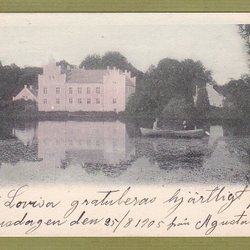 Lovisa gratuleras hjärtligt
dagen den 25/8 1905 från Augusta